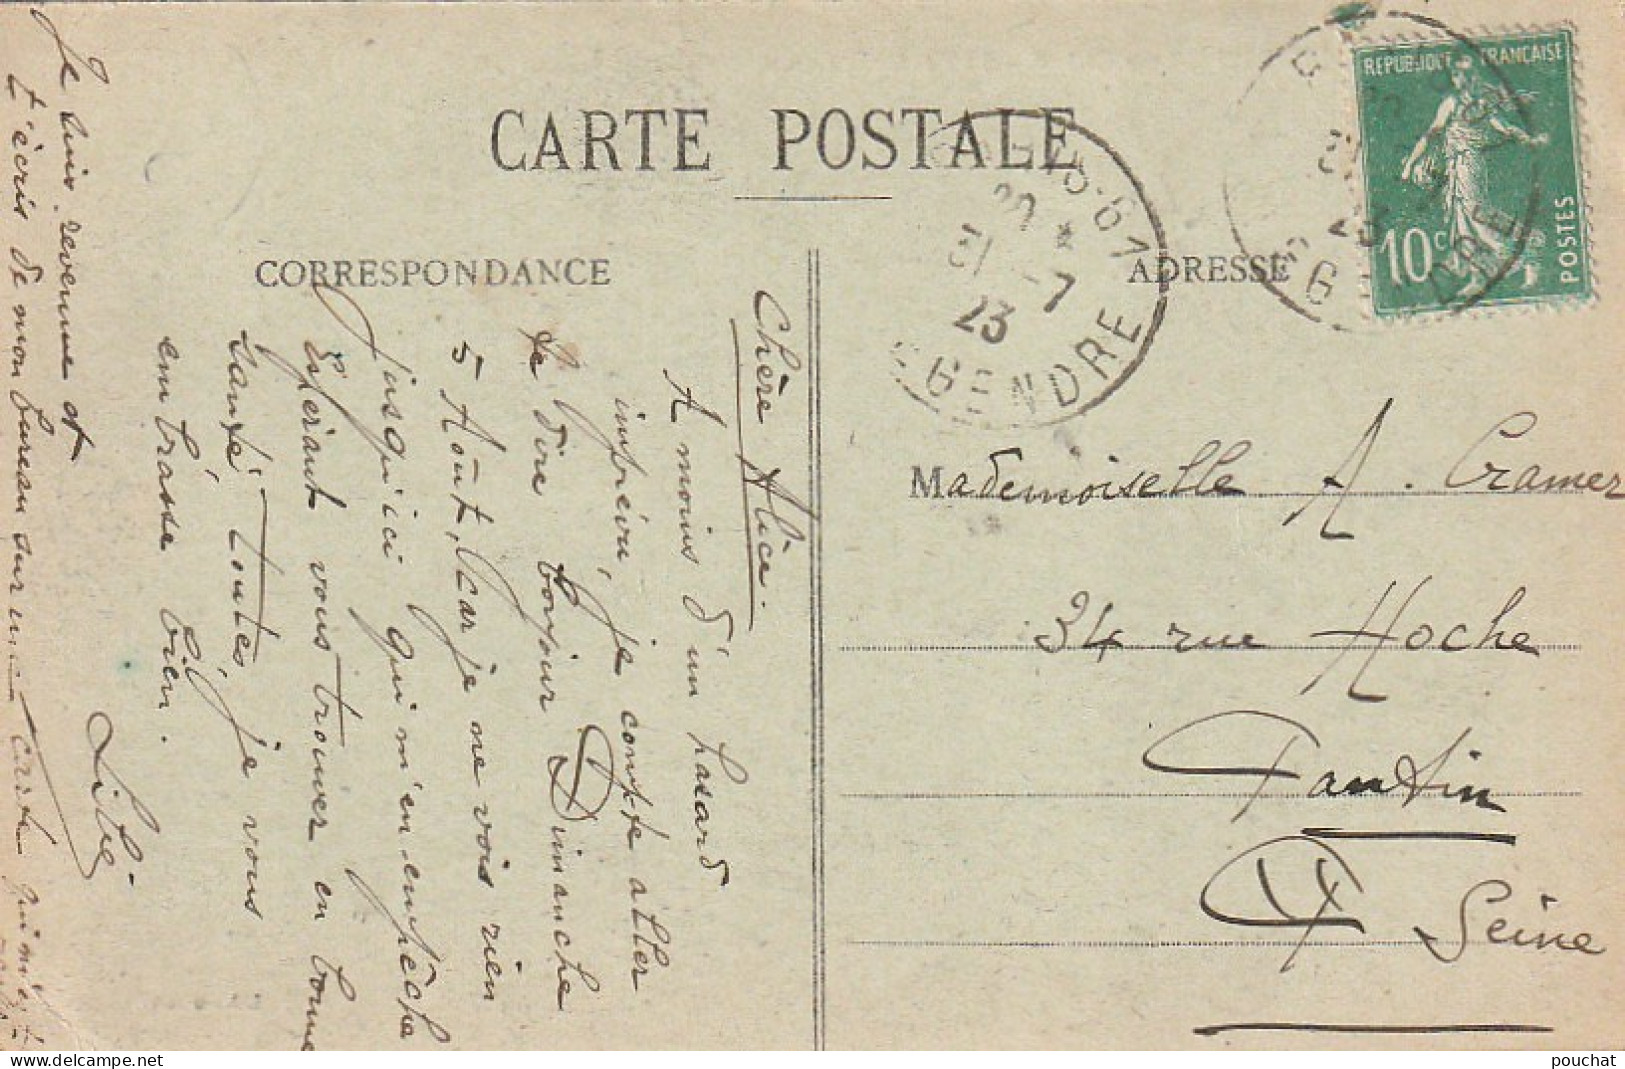 CARTE POSTALE
CORRESPONDANCE
ADRESSE
REPUBLIQUE FRANÇAISE
10c
POSTES
31 -7
23
GENDRE
Chère Alice.
A moins d'un hasard
imprévu, je compte aller
te dire bonjour Dimanche
5 Août, car je ne vois rien
jusqu'ici qui m'en empêche
Espérant vous trouver en bonne
santé toutes, je vous
embrasse bien.
Je suis revenue et
t'écris de mon bureau sur une carte
Mademoiselle A. Cramer
34 rue Hoche
Pantin
Seine
pouchat